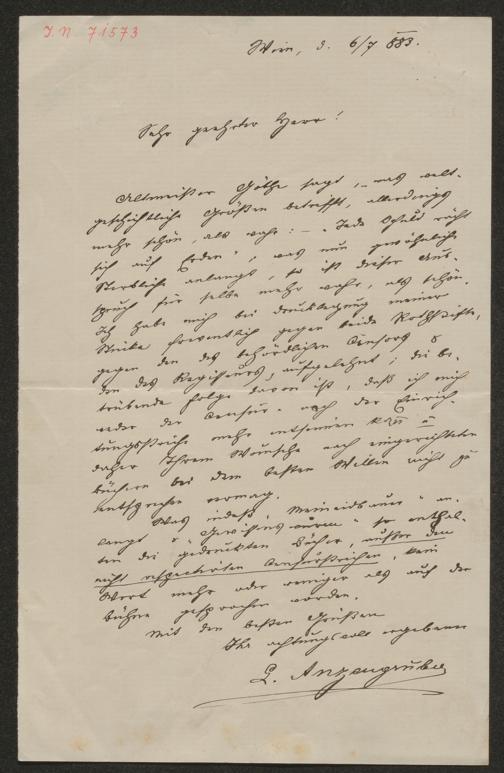 I.N 71573
Wien, d. 6/7 883.
Sehr geehrter Herr!
Altmeister Göthe sagt, – was welt-
geschichtliche Größen betrifft, allerdings
mehr schön, als wahr: – „Jede Schuld rächt
sich auf Erden", was nun gewöhnliche
Sterbliche anlangt, so ist dieser Aus-
spruch für selbe mehr wahr, als schön.
Ich habe mich bei Drucklegung meiner
Stücke freventlich gegen beide Rothstifte,
gegen den des behördlichen Censors &
den des Regisseurs, aufgelehnt; die be-
trübende Folge davon ist, daß ich mich
weder der Censur- noch der Einrich-
tungsstriche mehr entsinnen kann u
daher Ihrem Wunsche nach eingerichteten
Büchern bei dem besten Willen nicht zu
entsprechen vermag.
Was indeß „Meineidbauer" an-
langt & „Gewissenswurm" so enthal-
ten die gedruckten Bücher, außer den
nicht respectirten Censurstrichen, kein
Wort mehr oder weniger als auf der
Bühne gesprochen worden.
Mit den besten Grüßen
Ihr achtungsvoll ergebener
L. Anzengruber